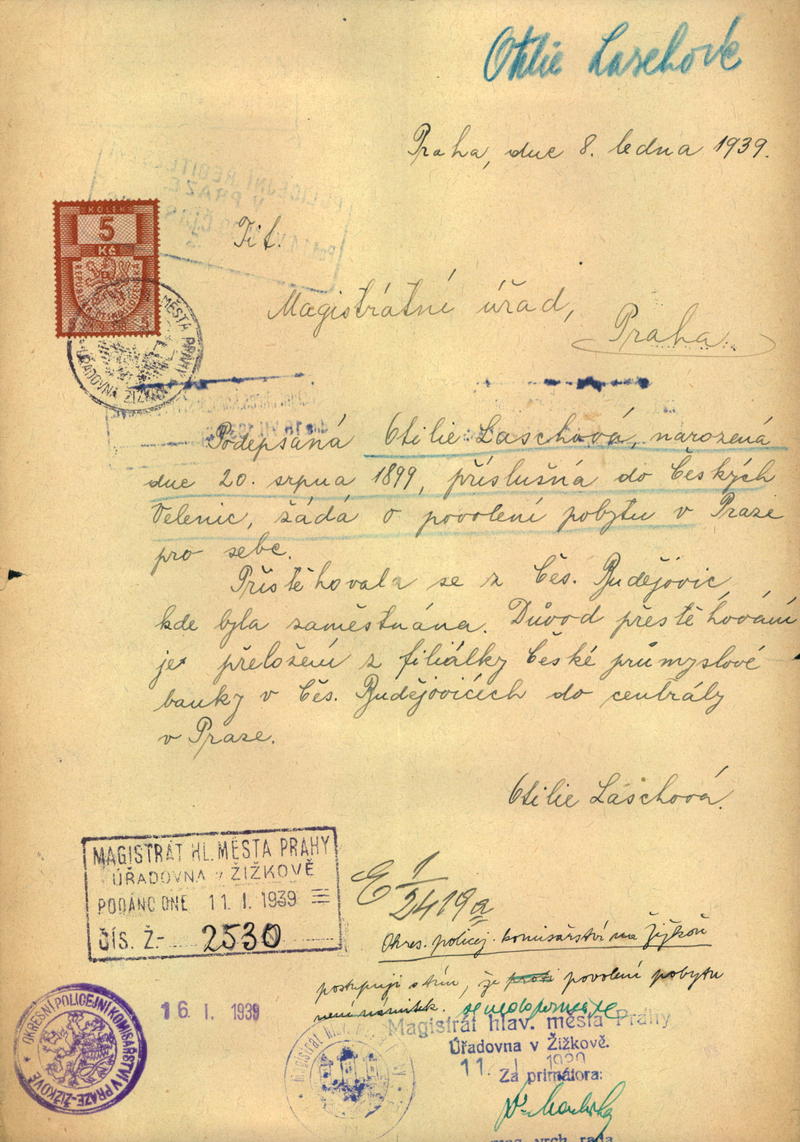 Otilie Laschové
Praha, dne 8. ledna 1939.
KOLEK
5
Kč
Tit.
Magistrátní úřad,
Praha.
MĚSTA PRAHY
ÚŘADOVNA ŽIŽKOV
Podepsaná Otilie Laschová, narozená
dne 20. srpna 1899, příslušná do Českých
Velenic, žádá o povolení pobytu v Praze
pro sebe.
Přistěhovala se z Čes. Budějovic,
kde byla zaměstnána. Důvod přestěhování
je přeložení z filiálky České průmyslové
banky v Čes. Budějovicích do centrály
v Praze.
Otilie Laschová.
MAGISTRÁT HL. MĚSTA PRAHY
ÚŘADOVNA v ŽIŽKOVĚ
PODÁNO DNE 11. I. 1939
ČÍS. Ž.- 2530
E 1/2419a
Okres. policej. komisařství na Žižkově
postupuji s tím, že proti povolení pobytu
není námitek. se nedoporučuje
OKRESNÍ POLICEJNÍ KOMISAŘSTVÍ V PRAZE-ŽIŽKOVĚ
16. I. 1939
Magistrát hlav. města Prahy
Úřadovna v Žižkově.
11. I. 1939
Za primátora:
mag. vrch. rada